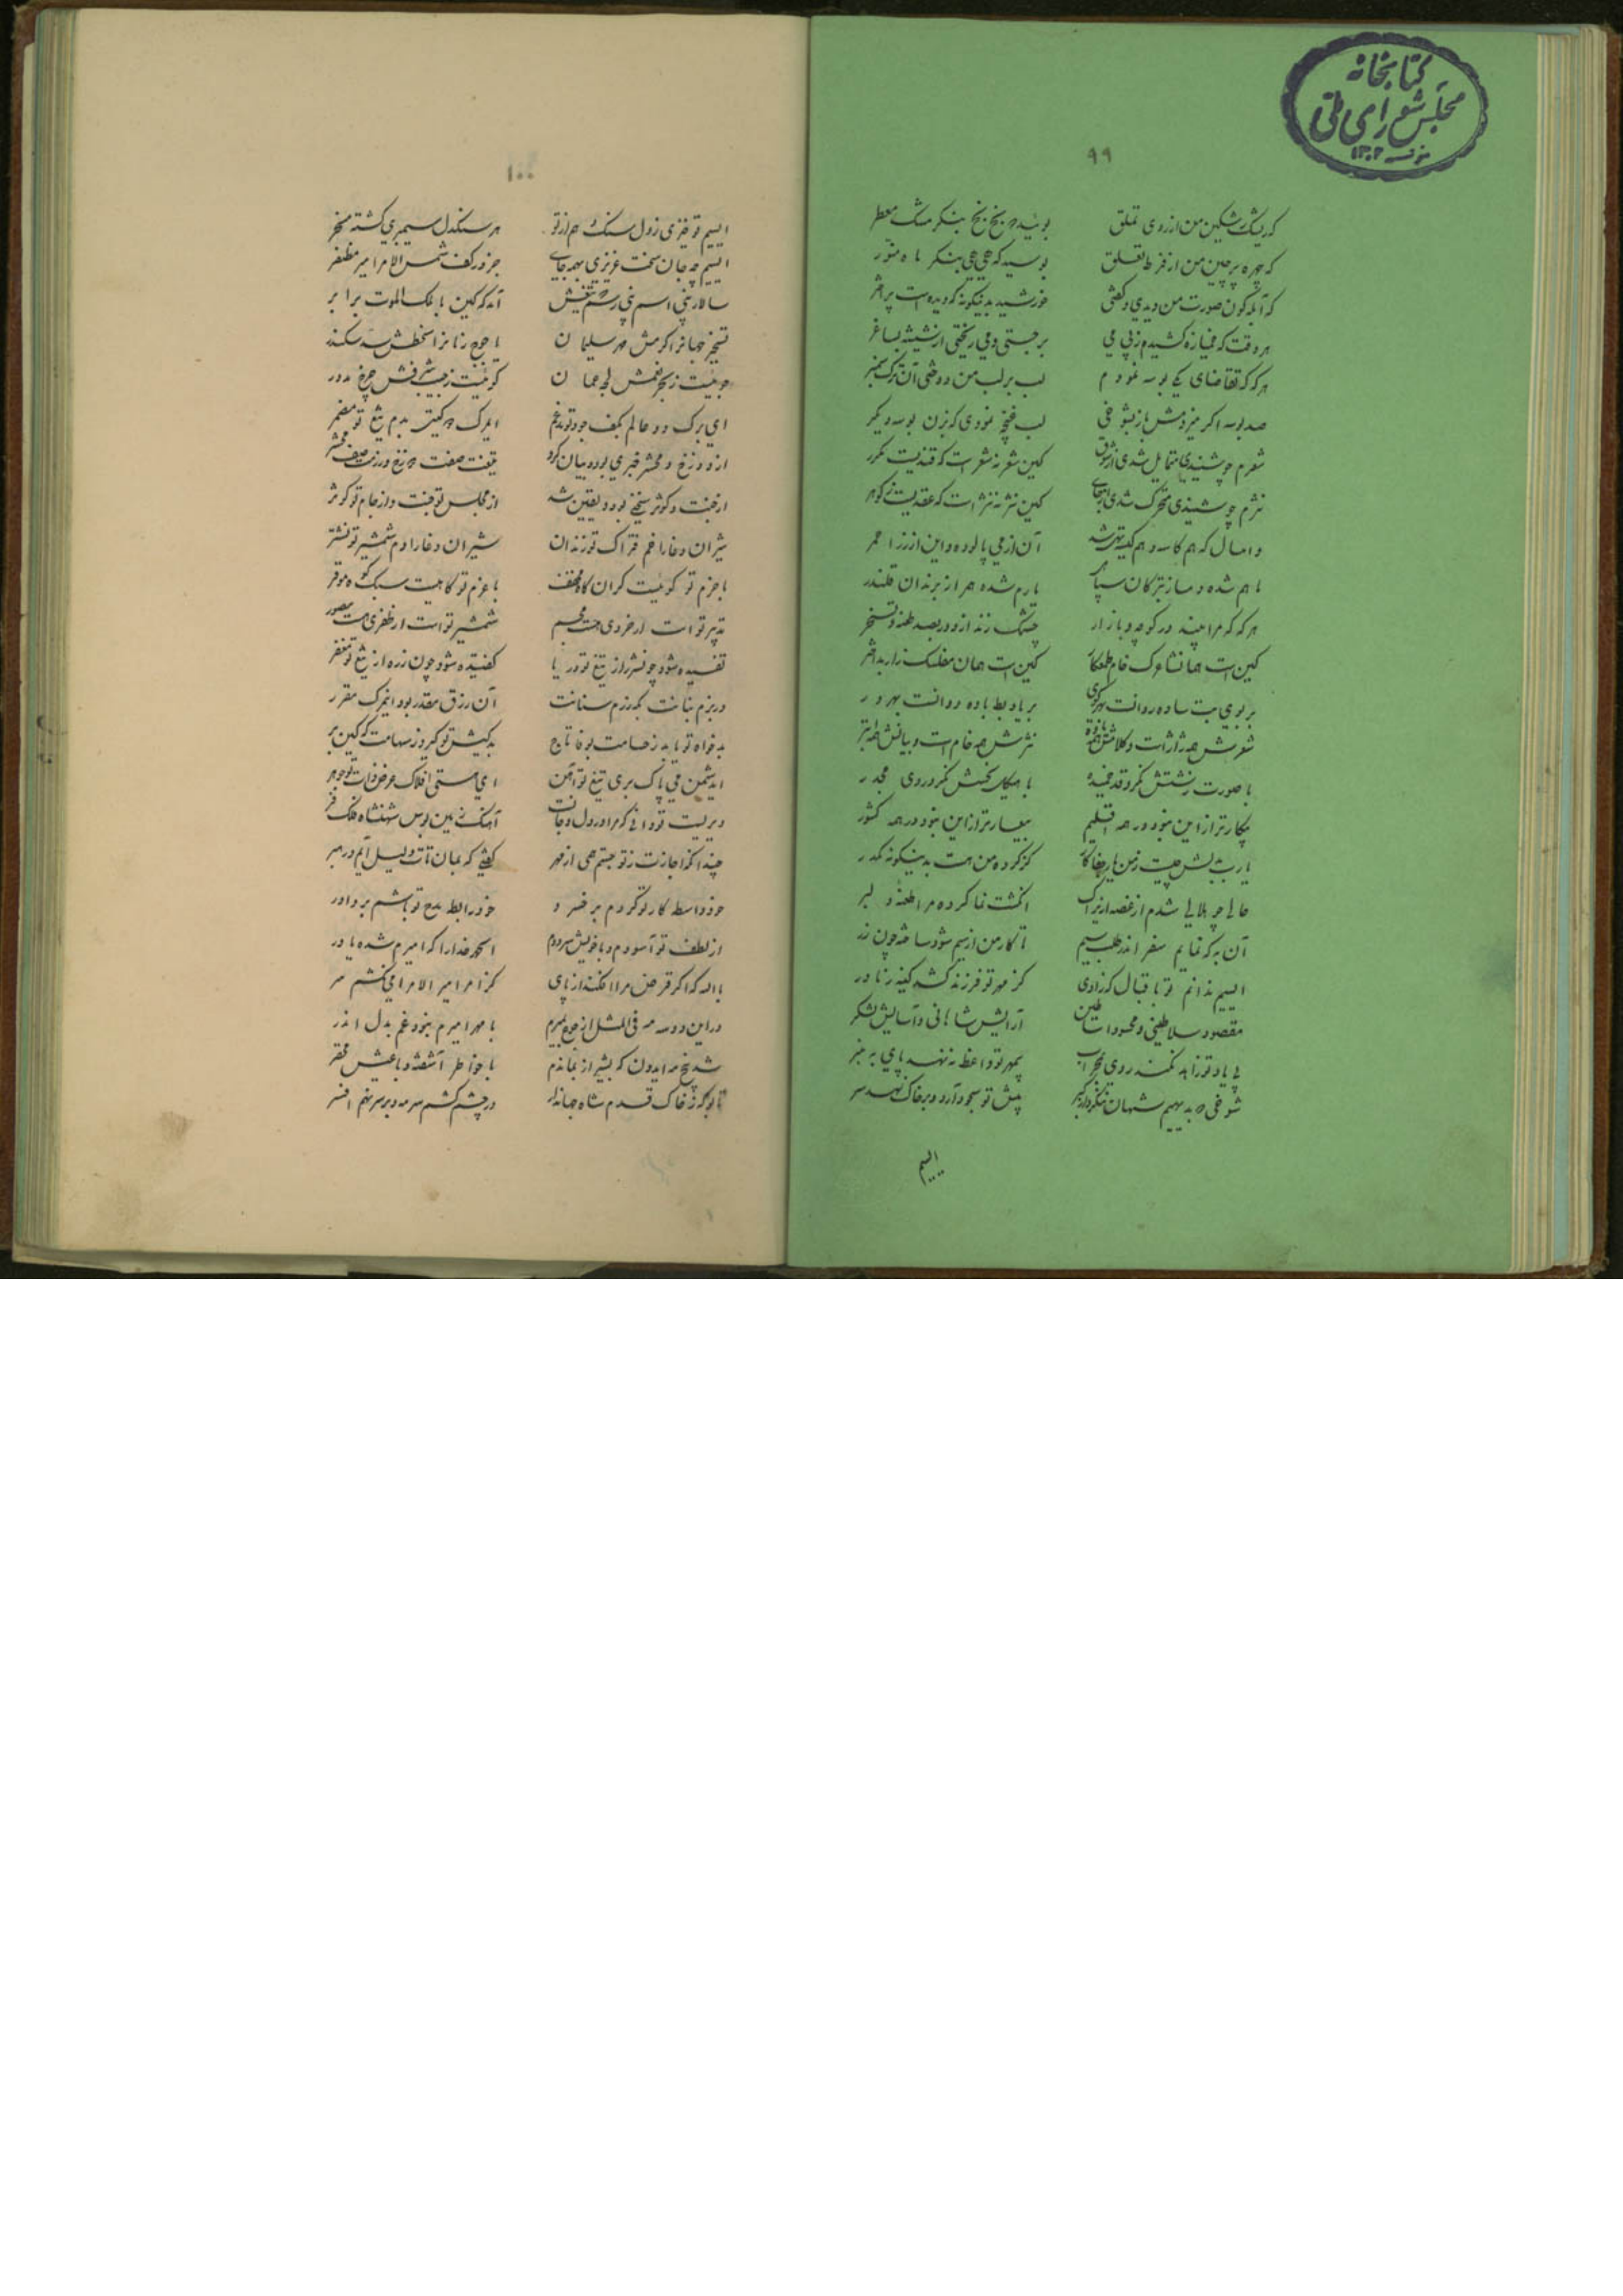 کتابخانه
مجلس شورای ملی
۱۳۰۲
۹۹
که ریشک مشکین من از روی تملق بوئید و بخ بخ بنگر مشک معطر
که چهره پرچین من از فرط تعلق بوسید که هی هی بنگر ماه منور
که آبله گون صورت من دیدی و گفتی خورشید بدینگونه که دیده است پر اختر
هر وقت که خمیازه کشیدم ز پی می برجستی و می ریختی از شیشه بساغر
هر گه که تقاضای یکی بوسه نمودم لب بر لب من دوختی آن ترک
صد بوسه اگر میزدمش باز بشوخی لب غنچه نمودی که بزن بوسه دیگر
شعرم چو شنیدی متمایل شدی از شوق کاین شعر نه شعر است که قندیست مکرر
نثرم چو شنیدی متحرک شدی از جای کاین نثر نه نثر است که عقدیست ز گوهر
و امسال که هم کاسه و هم کیسه تهی شد آن از می پالوده و این از زر احمر
هر که که مرا بیند در کوچه و بازار چشمک زند از دور بصد طعنه و تسخر
کین است همان شاعرک خام طمعکار کین است همان مفلسک زار بداختر
بر بوی بت ساده روانست بهر کوی بر یاد بط باده دوانست بهر در
شعرش همه ژاژ است و کلامش همه نثرش همه خام است و بیانش همه ابتر
با صورت زشتش نگر و قد خمیده با هیکل نحسش نگر و روی مجدر
بیکارتر از این نبود در همه اقلیم بیعارتر از این نبود در همه کشور
یا رب بدلش چیست ز من یار جفاکار کز کرده من هست بدینگونه مکدر
حالی چو هلالی شدم از غصه ازیراک انگشت نما کرده مرا طعنه دلبر
آن به که نمایم سفر اندر طلب سیم تا کار من از سیم شود ساخته چون زر
ای سیم ندانم تو باقبال که زادی کز مهر تو فرزند کشد کینه ز مادر
مقصود سلاطینی و محسود اساطین آرایش شاهانی و آسایش لشکر
بی یاد تو زاهد نکند روی بمحراب بیمهر تو واعظ ننهد پای به منبر
شوخی که به دیهیم شهان ننگرد از کبر پیش تو سجود آرد و بر خاک نهد سر
ای سیم
۱۰۰
ای سیم تو قیزی ز دل سنگ هم از تو هر سنگدل سیمبری گشته مسخر
ای سیم چه جان سخت عزیزی بهمه جای جز در کف شمس الامرا میر مظفر
سالار نبی اسم نبی رسم که تیغش آمد گه کین با ملک الموت برابر
تسخیر جهان را کرمش مهر سلیمان یاجوج زمان را سخطش سد سکندر
جوئیست ز بحر نعمش لجه عمان گوئیست ز جیب شرفش چرخ مدور
ای برگ دو عالم بکف جود تو مدغم ای مرگ دو گیتی بدم تیغ تو مضمر
از دوزخ و محشر خبری بوده بیان کرد تیغت صفت دوزخ و رزمت صف محشر
از جنت و کوثر سخنی بود و یقین شد از مجلس تو جنت و از جام تو کوثر
شیران وغا را خم فتراک تو زندان شیران وغا را دم شمشیر تو نشتر
با حزم تو کوهیست گران کاه مخفف با عزم تو کاهیست سبک کوه موقر
تدبیر تو است ار خردی هست مجسم شمشیر تو است ار ظفری هست مصور
تفسیده شود چون شرر از تیغ تو دریا کفتیده شود چون زره از تیغ تو مغفر
در بزم بنانت بگه رزم سنانت آن رزق مقدر بود این مرگ مقرر
بدخواه تو یابد ز حسامت بوغا تاج بدکیش تو گیرد ز سهامت گه کین بر
ای دشمن می پاک بری تیغ تو آهن ای هستی افلاک عرض ذات تو جوهر
دیریست تو دانی که مرا در دل و جانست آهنگ زمین بوس شهنشاه فلک فر
چندانکه اجازت ز تو جستم همی از مهر گفتی که بمان تات دلیل آیم و رهبر
خود واسطه کار تو گردم بر خسرو خود رابطه مدح تو باشم بر داور
از لطف تو آسودم و با خویش سرودم الحمد خدا را که امیرم شده یاور
بالله که اگر قرض مرا افکند از پای کز امر امیر الامرا می نکشم سر
در این دو سه مه فی المثل از جوع بمیرم با مهر امیرم نبود غم بدل اندر
شد پنج مه ایدون که بشیراز بماندم با خواطر آشفته و با عیش محقر
تا بو که ز خاک قدم شاه جهاندار در چشم کشم سرمه و بر سر نهم افسر